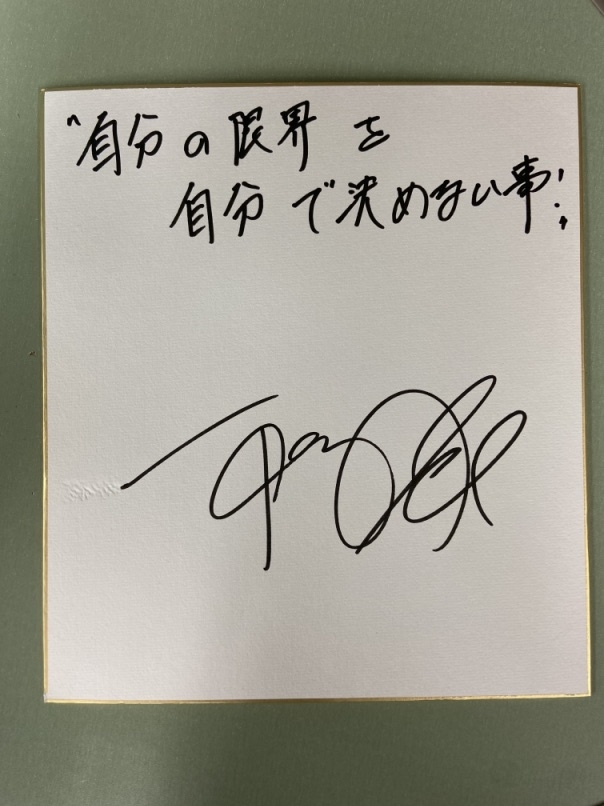 "自分の限界を
自分で決めない事!,